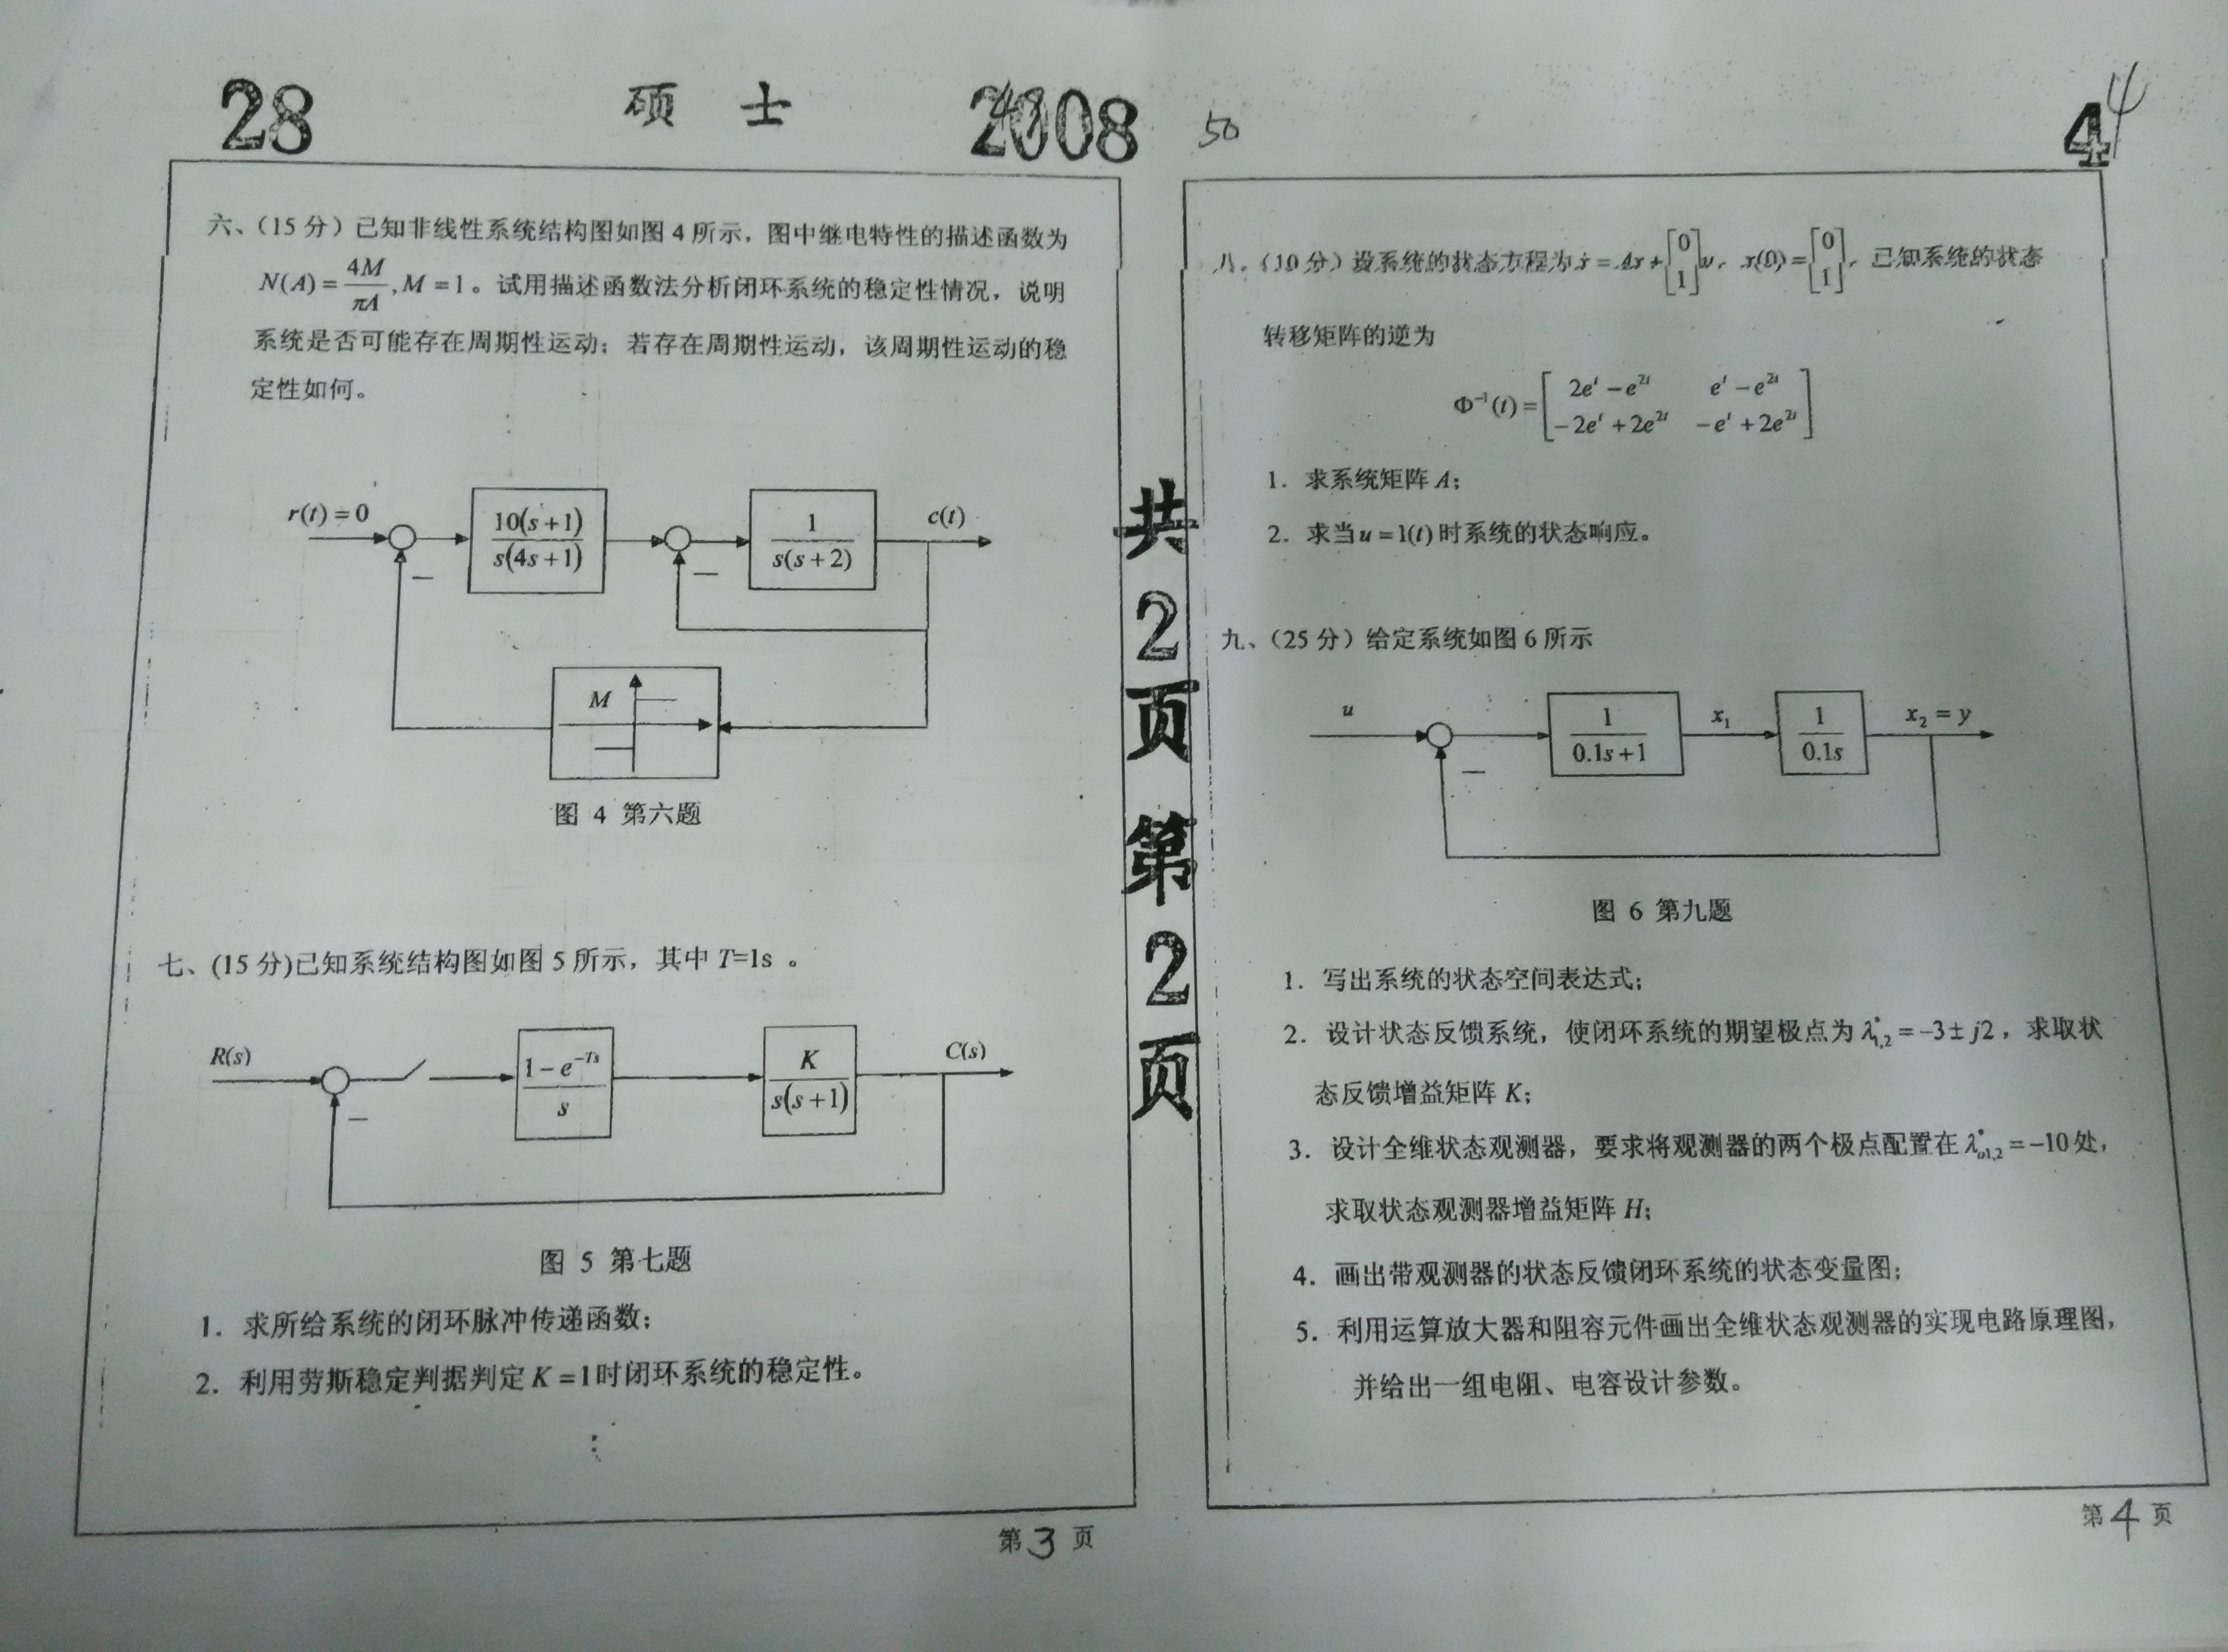 28 硕 士 2008 50 4 4
六、（15 分）已知非线性系统结构图如图 4 所示，图中继电特性的描述函数为
N(A) = 4M/πA , M = 1。试用描述函数法分析闭环系统的稳定性情况，说明
系统是否可能存在周期性运动；若存在周期性运动，该周期性运动的稳
定性如何。
r(t) = 0
10(s+1)/s(4s+1)
1/s(s+2)
c(t)
M
图 4 第六题
七、(15 分)已知系统结构图如图 5 所示，其中 T=1s 。
R(s)
1−e^{−Ts}/s
K/s(s+1)
C(s)
图 5 第七题
1. 求所给系统的闭环脉冲传递函数；
2. 利用劳斯稳定判据判定 K = 1 时闭环系统的稳定性。
第 3 页
共 2 页 第 2 页
八、（10 分）设系统的状态方程为 ẋ = Ax + [0 1] u， x(0) = [0 1]，已知系统的状态
转移矩阵的逆为
Φ⁻¹(t) = [ 2e^t − e^{2t} e^t − e^{2t}
−2e^t + 2e^{2t} −e^t + 2e^{2t} ]
1. 求系统矩阵 A；
2. 求当 u = 1(t) 时系统的状态响应。
九、（25 分）给定系统如图 6 所示
u
1/0.1s+1
x₁
1/0.1s
x₂ = y
图 6 第九题
1. 写出系统的状态空间表达式；
2. 设计状态反馈系统，使闭环系统的期望极点为 λ*₁,₂ = −3 ± j2，求取状
态反馈增益矩阵 K；
3. 设计全维状态观测器，要求将观测器的两个极点配置在 λ*ₒ₁,₂ = −10 处，
求取状态观测器增益矩阵 H；
4. 画出带观测器的状态反馈闭环系统的状态变量图；
5. 利用运算放大器和阻容元件画出全维状态观测器的实现电路原理图，
并给出一组电阻、电容设计参数。
第 4 页